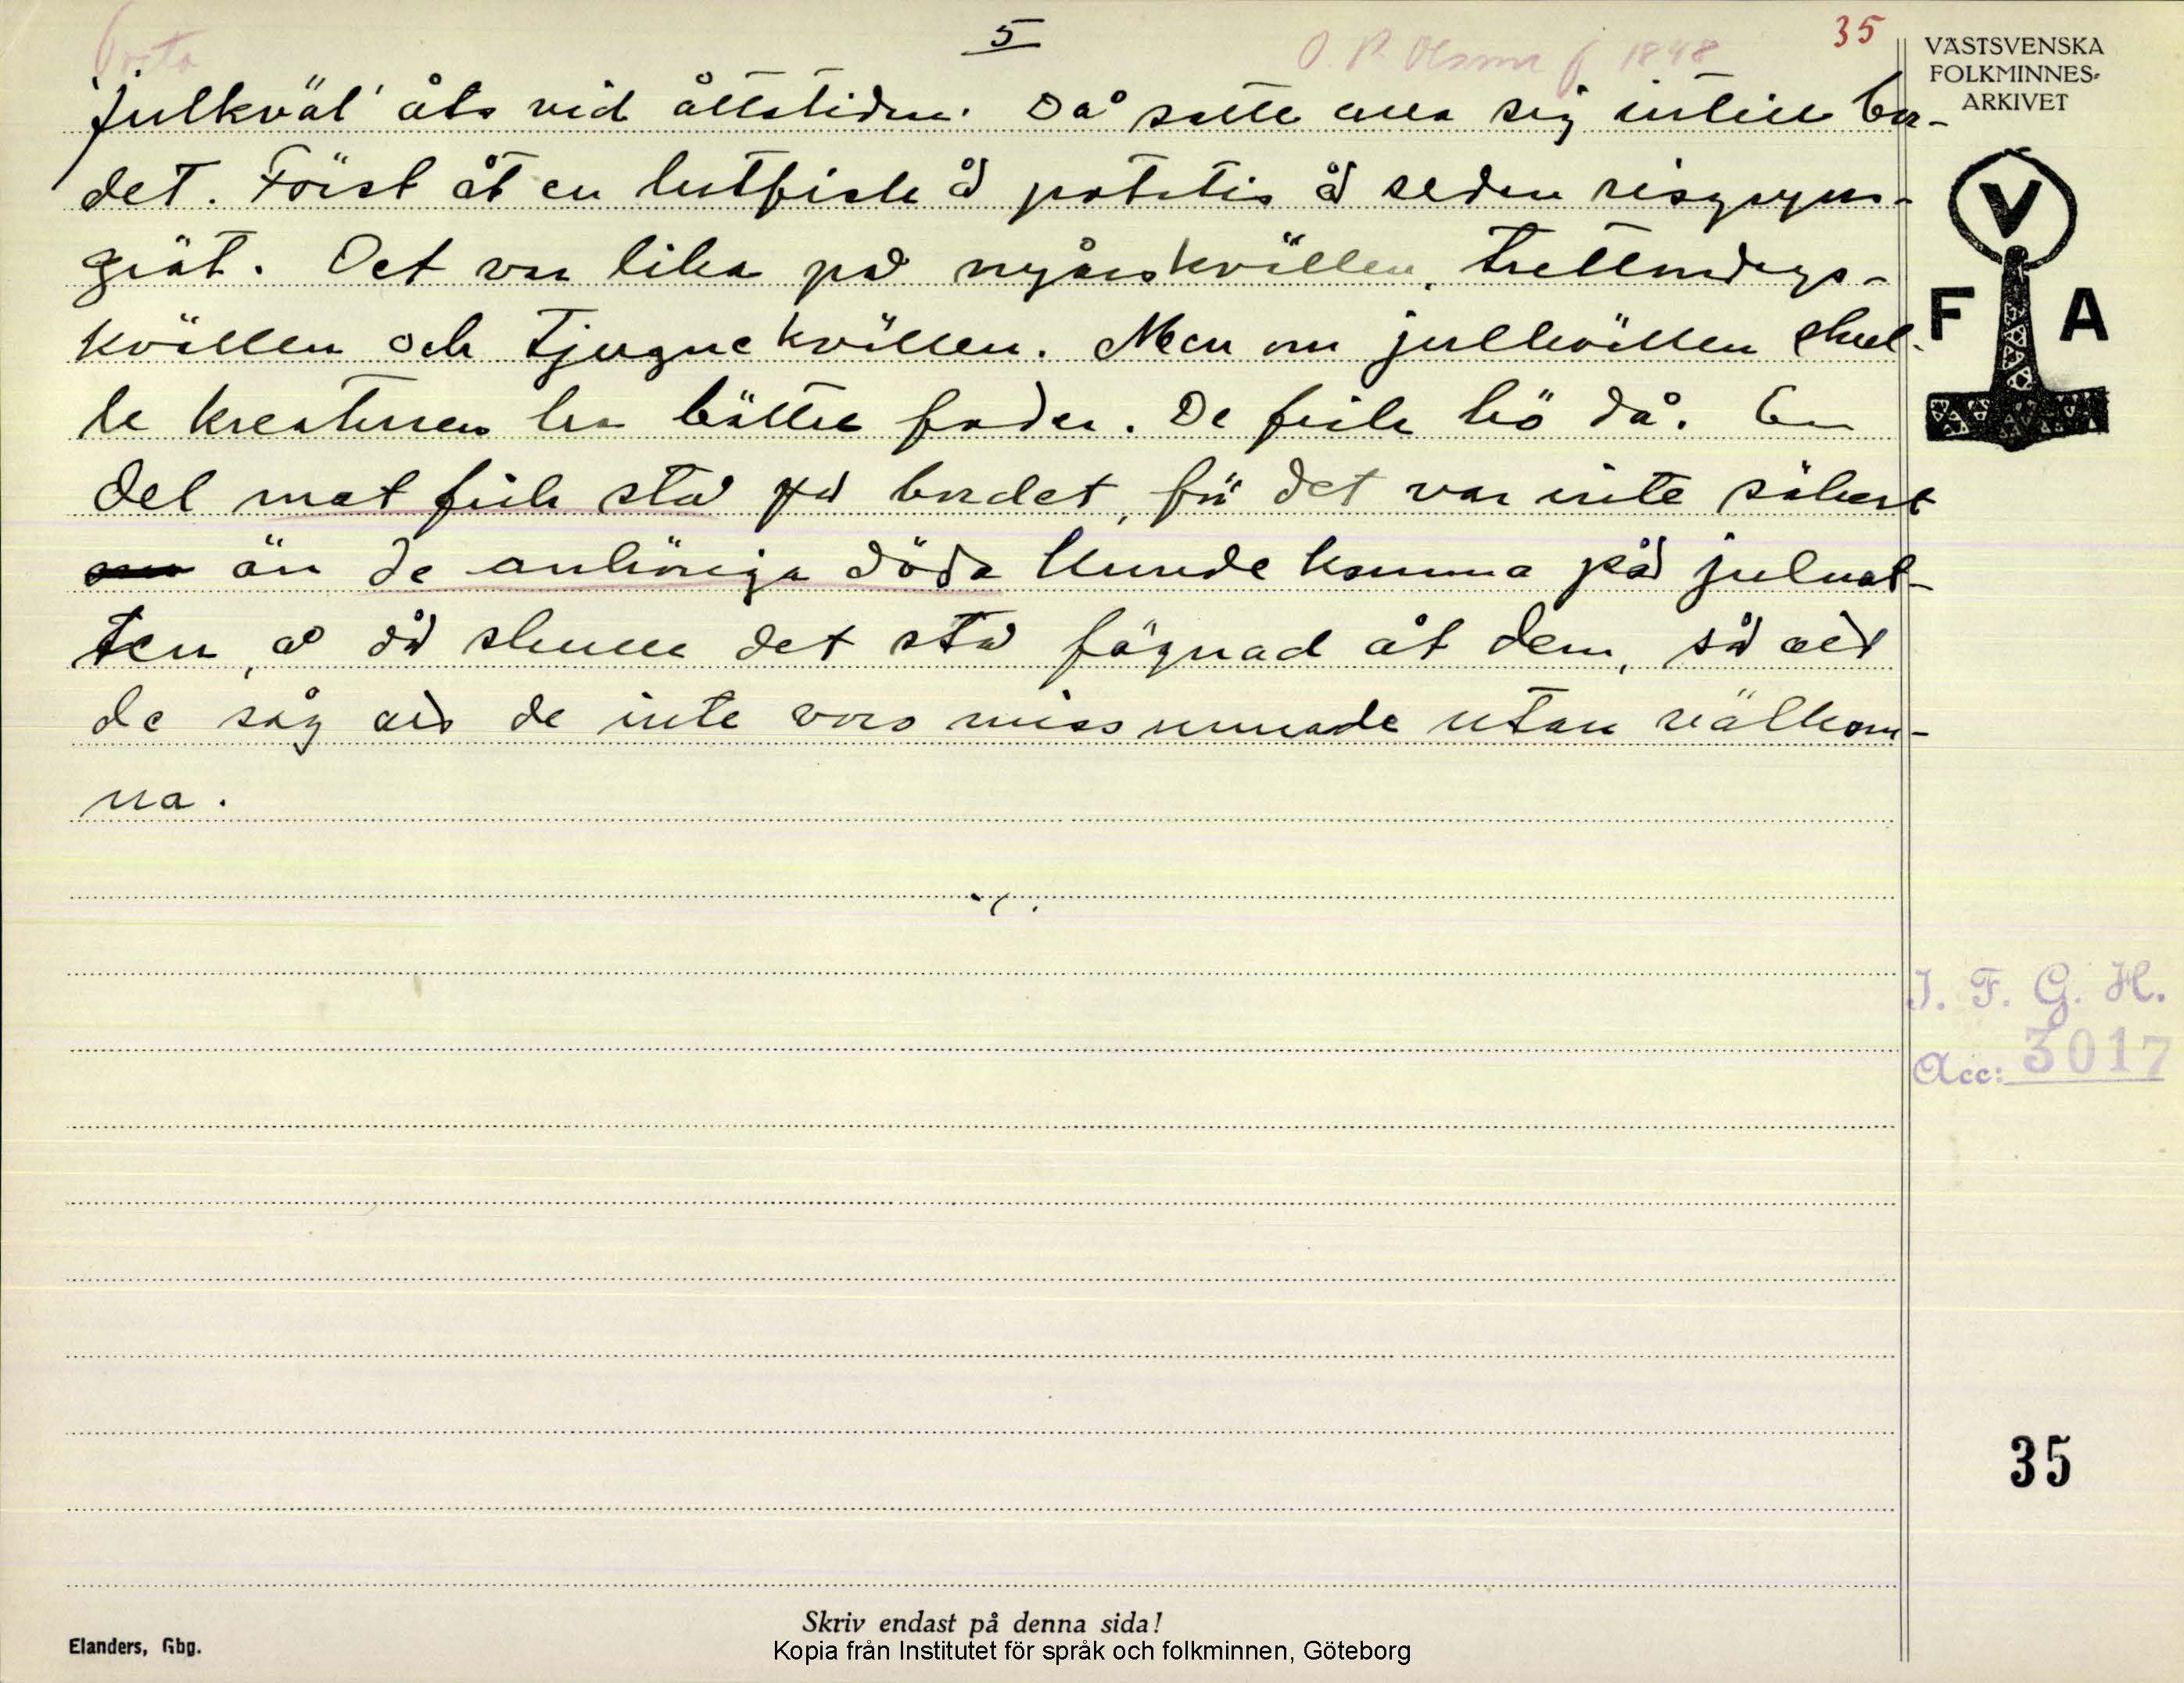 5
35
O. P. Olsson f 1848
VÄSTSVENSKA
FOLKMINNES-
ARKIVET
'Julkväl' åts vid åttatiden. Då satte alla sig intill bor-
det. Föist åt en lutfisk å potatis å seden risgryns-
gröt. Det var lika på nyårskvällen, trettondags-
kvällen och tjugnekvällen. Men om julkvällen skul-
le kreaturen ha bättre foder. De fick hö då. En
del mat fick stå på bordet, för det var inte säkert
än de anhöriga döda kunde komma på julnat-
ten, å då skulle det stå fägnad åt dem, så att
de såg att de inte voro missunnade utan välkom-
na.
V
F A
I. F. G. H.
Acc: 3017
35
Skriv endast på denna sida!
Elanders, Gbg.
Kopia från Institutet för språk och folkminnen, Göteborg